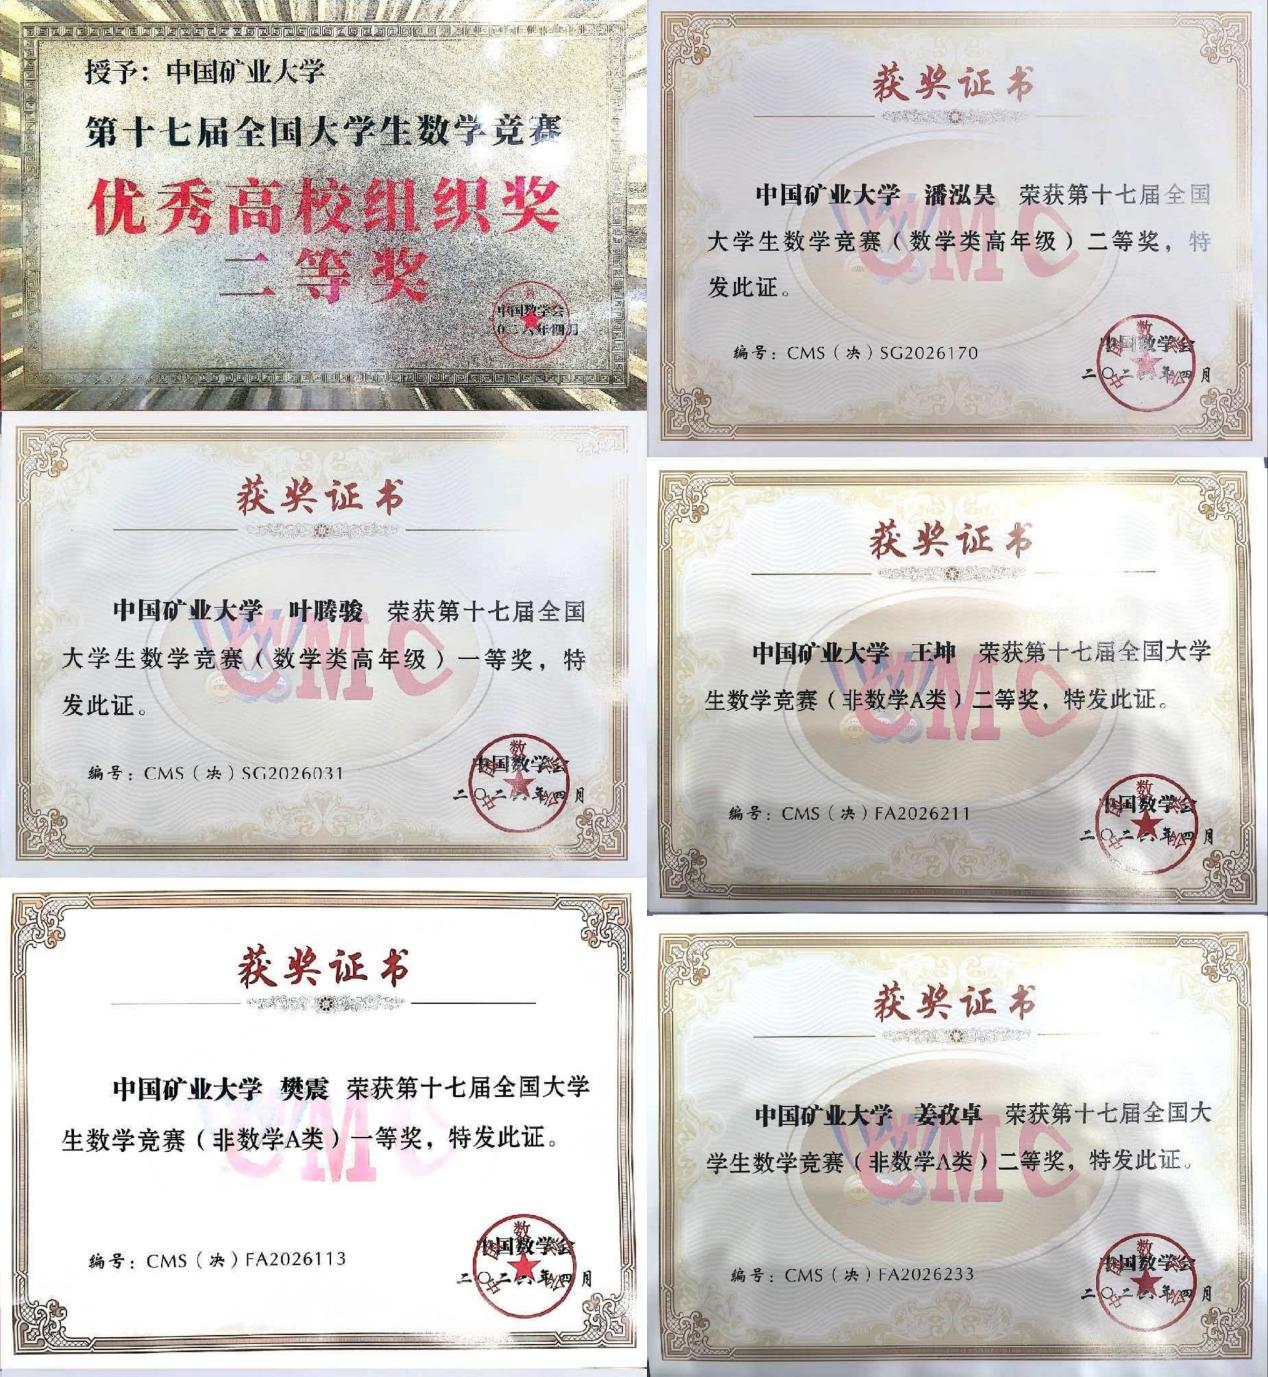 授予：中国矿业大学
第十七届全国大学生数学竞赛
优秀高校组织奖
二等奖
中国数学会
获奖证书
中国矿业大学 潘泓昊 荣获第十七届全国
大学生数学竞赛（数学类高年级）二等奖，特
发此证。
编号：CMS（决）SG2026170
中国数学会
二〇二六年四月
获奖证书
中国矿业大学 叶腾骏 荣获第十七届全国
大学生数学竞赛（数学类高年级）一等奖，特
发此证。
编号：CMS（决）SG2026031
中国数学会
二〇二六年四月
获奖证书
中国矿业大学 王坤 荣获第十七届全国大学
生数学竞赛（非数学A类）二等奖，特发此证。
编号：CMS（决）FA2026211
中国数学会
二〇二六年四月
获奖证书
中国矿业大学 樊震 荣获第十七届全国大学
生数学竞赛（非数学A类）一等奖，特发此证。
编号：CMS（决）FA2026113
中国数学会
二〇二六年四月
获奖证书
中国矿业大学 姜孜卓 荣获第十七届全国大
学生数学竞赛（非数学A类）二等奖，特发此证。
编号：CMS（决）FA2026233
中国数学会
二〇二六年四月